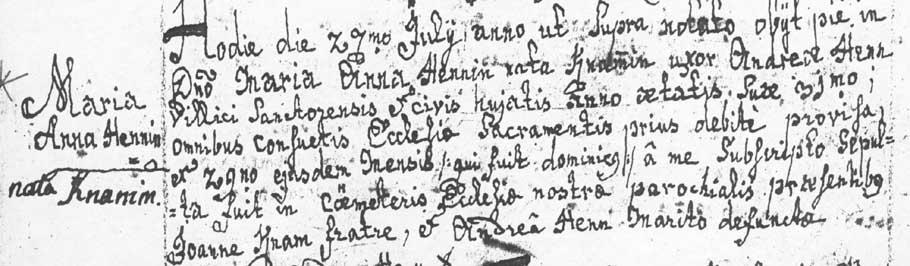 Maria
Anna Hennin
nata Knamin.
Hodie die 27mo July anno ut supra notato obijt pie in
Dno Maria Anna Hennin nata Knamin uxor Andreae Henn
Villici Sanctorensis et civis hujatis Anno aetatis suae 31mo;
omnibus consuetis Ecclesiae Sacramentis prius debitè provisa,
et 29no ejusdem mensis /:qui fuit dominicus:/ â me subscripto sepul=
=ta fuit in Coemeterio Ecclesiae nostrae parochialis praesentibus
Joanne Knam fratre, et Andreâ Henn marito defunctae